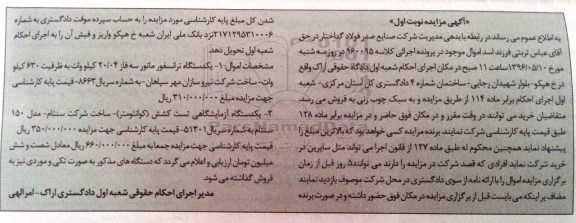 «آگهی مزایده نوبت اول»
به اطلاع عموم می رساند در رابطه با بدهی مدیریت شرکت صنایع صدر فولاد گداختار در حق
آقای عباس تربتی فرزند اسد اموال موجود در پرونده اجرائی کلاسه ۹۶۰۰۹۵ در روز سه شنبه
مورخ ۱۳۹۶/۰۵/۱۰ ساعت ۱۱ صبح در مکان اجرای احکام شعبه اول دادگاه حقوقی اراک واقع
در خ هپکو- بلوار شهیدان رجایی- ساختمان شماره ۴ دادگستری کل استان مرکزی- شعبه
اول اجرای احکام برابر ماده ۱۱۴ از طریق مزایده و به سبک چوب زنی به فروش می رسد.
متقاضیان خرید می توانند در وقت مقرر و در مکان فوق حاضر و در مزایده برابر ماده ۱۲۸
طبق قیمت پایه کارشناسی شرکت نمایند، برنده مزایده کسی خواهد بود که بالاترین مبلغ را
پیشنهاد نماید همچنین محکوم له طبق ماده ۱۲۷ از قانون اجرا می تواند مثل سایرین در
خرید شرکت نماید افرادی که قصد شرکت در مزایده را دارند می توانند ۵ روز قبل از زمان
برگزاری مزایده اموال را با ارائه نامه از سوی دادگستری در محل شرکت موصوف بازدید نمایند
مضاف بر اینکه می بایست قبل از برگزاری مزایده در مکان فوق حضور داشته و در صورت برنده
شدن کل مبلغ پایه کارشناسی مورد مزایده را به حساب سپرده موقت دادگستری به شماره
۲۱۷۱۲۹۵۳۱۰۰۰۶ نزد بانک ملی ایران شعبه خ هپکو واریز و فیش آن را به اجرای احکام
شعبه اول تحویل دهد.
مشخصات اموال: ۱- یکدستگاه ترانسفور ماتور سه فاز ۲۰/۰۴ کیلو وات به ظرفیت ۶۳۰ کیلو
وات- ساخت شرکت نیرو سازان مهر سپاهان- به شماره سریال ۸۶۶۳- قیمت پایه کارشناسی
جهت مزایده مبلغ ۳۱۰/۰۰۰/۰۰۰ ریال
۲- یکدستگاه آزمایشگاهی تست کشش (کوانتومتر)- ساخت شرکت سنتام- مدل ۱۵۰
سنتام به شماره سریال ۵۱۳۰۱- قیمت پایه کارشناسی جهت مزایده ۳۵۰/۰۰۰/۰۰۰ ریال
قیمت پایه کارشناسی جهت مزایده جمعا به مبلغ ۶۶۰/۰۰۰/۰۰۰ ریال معادل شصت و شش
میلیون تومان ارزیابی و اعلام می گردد که دستگاه های مذکور به صورت تکی و موردی نیز به
فروش گذاشته می شود.
مدیر اجرای احکام حقوقی شعبه اول دادگستری اراک- امرالهی